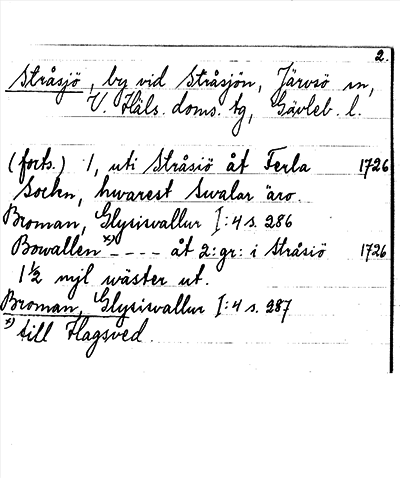 2.
Stråsjö, by vid Stråsjön, Järvsö sn,
V. Häls. doms. tg, Gävleb. l.
(forts.) 1, uti Stråsiö åt Ferla 1726
Sochn, hwarest Swalar äro.
Broman, Glysisvallur I:4 s. 286
Bowallen x) ---- åt 2:gr: i Stråsiö 1726
1 1/2 mjl wäster ut.
Broman, Glysisvallur I:4 s. 287
x) till Hagsved.